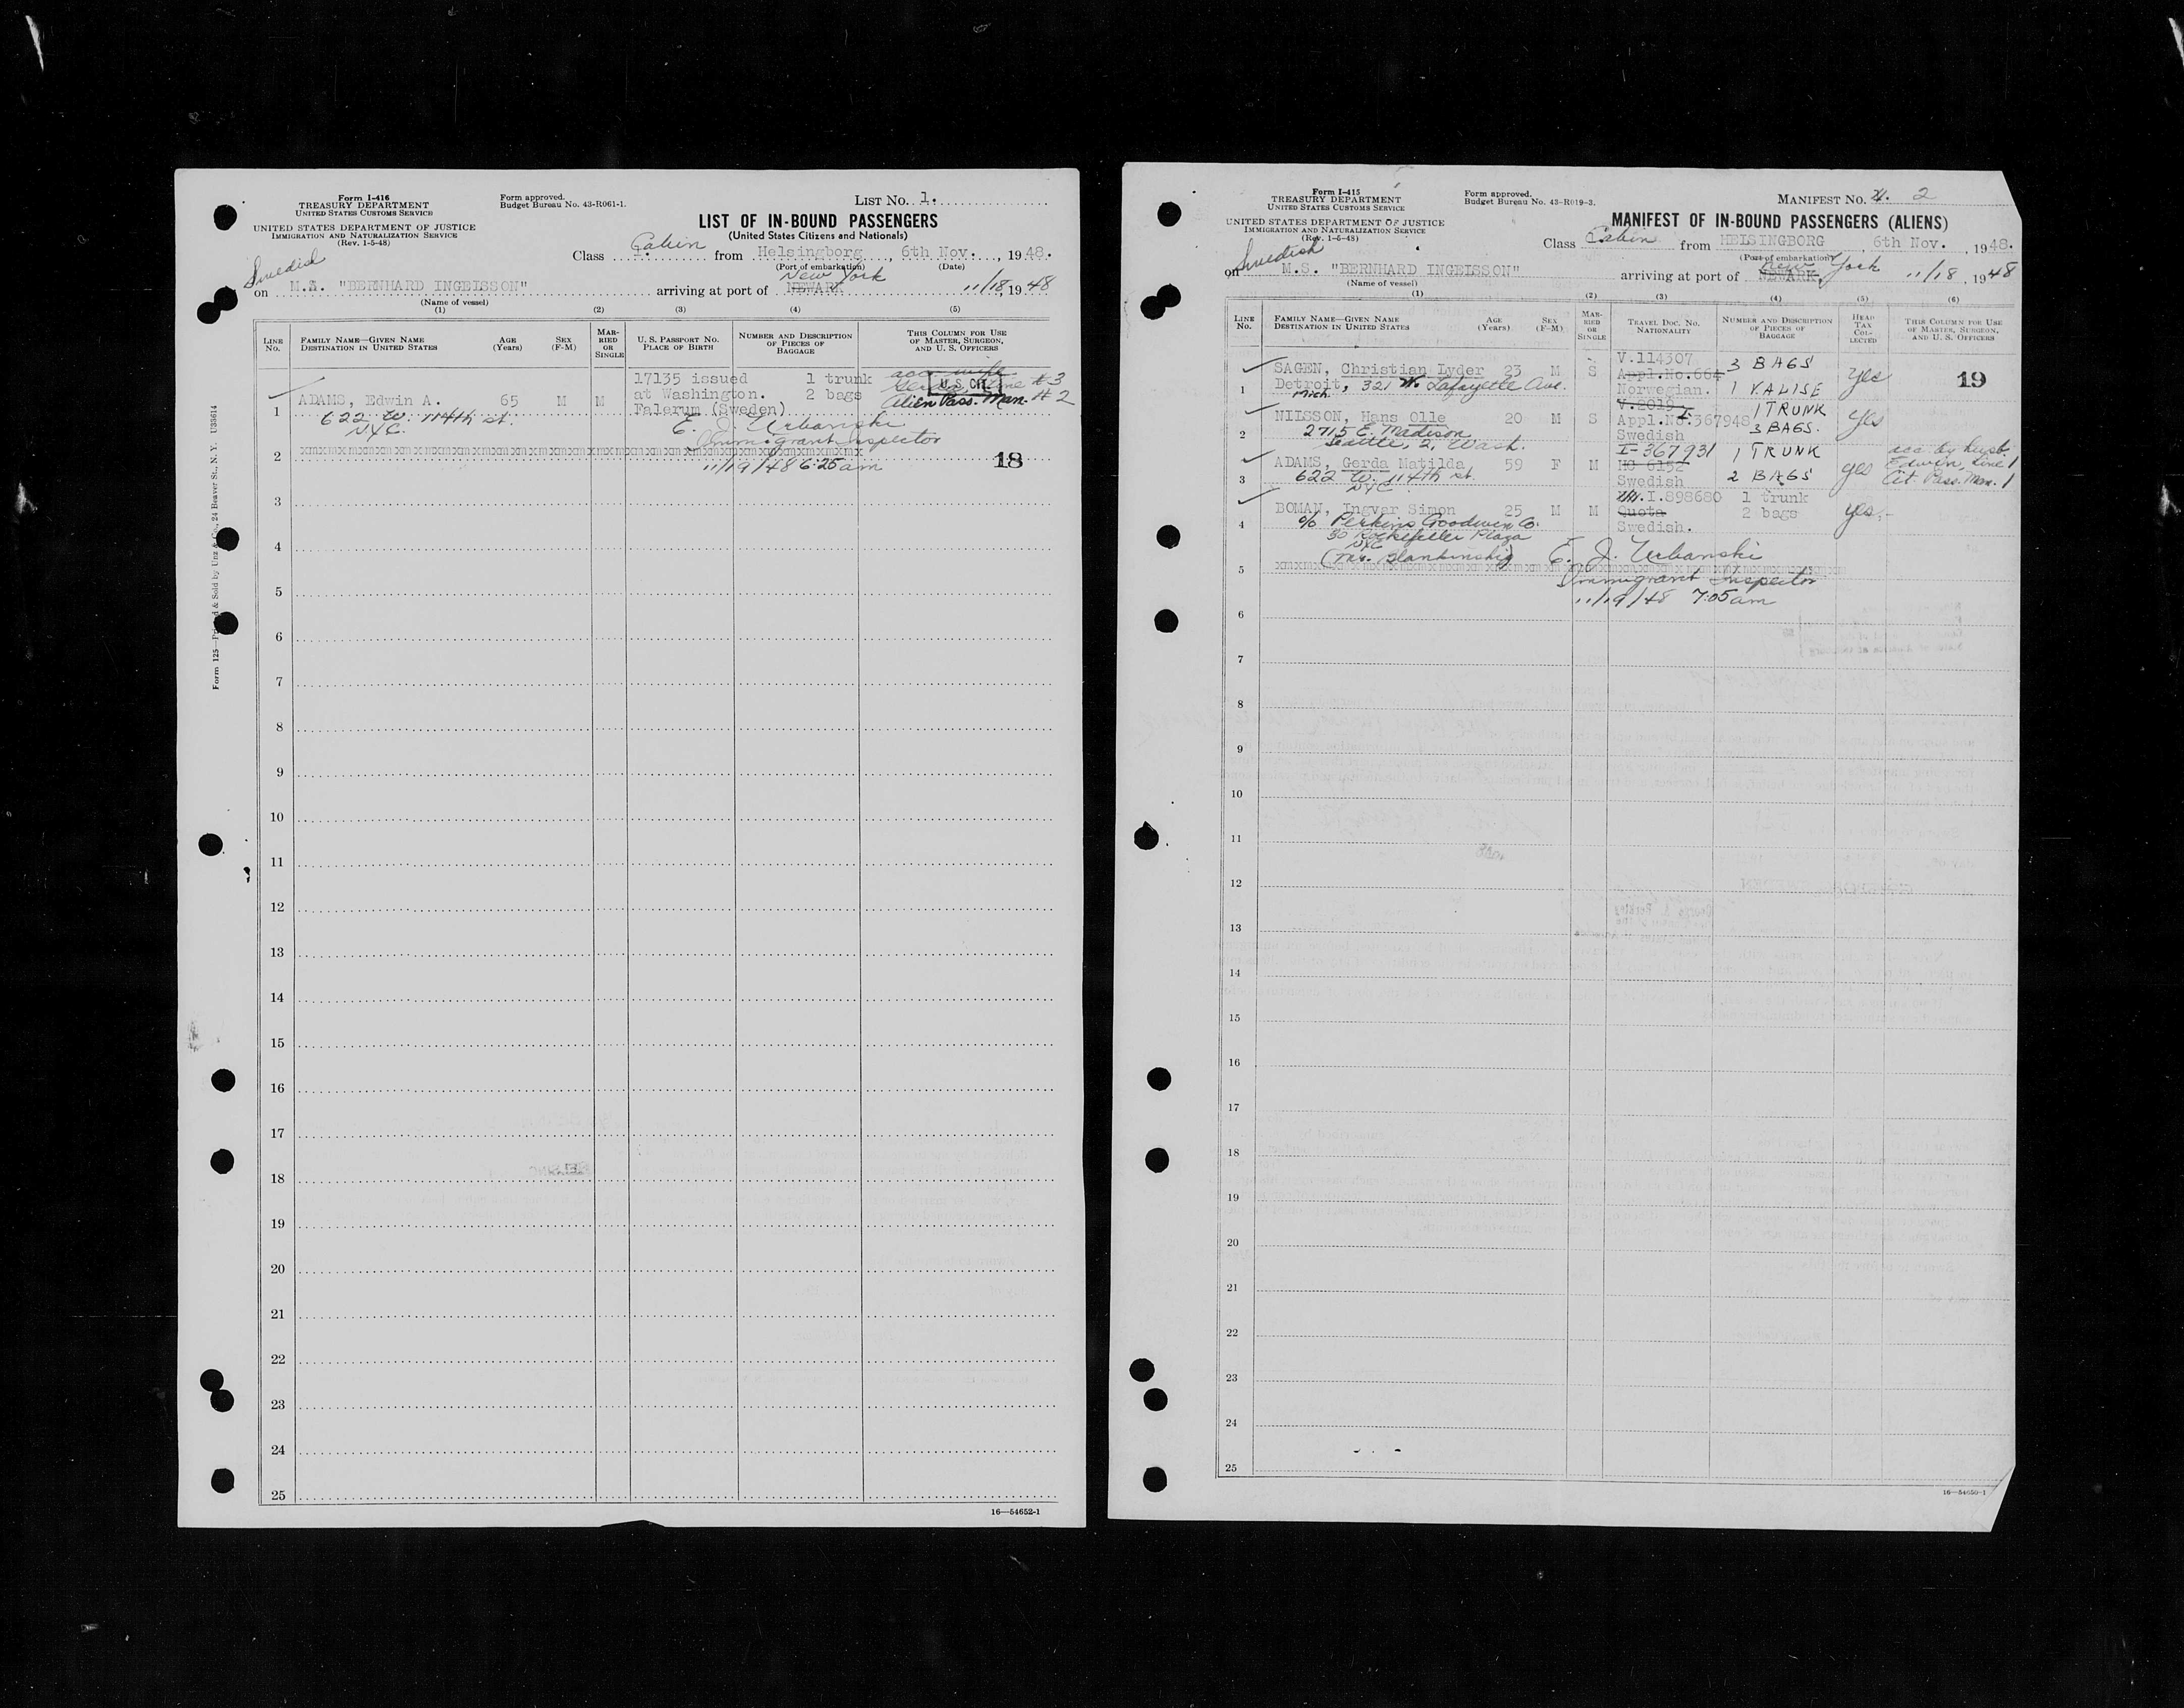 Form I-416
TREASURY DEPARTMENT
UNITED STATES CUSTOMS SERVICE
UNITED STATES DEPARTMENT OF JUSTICE
IMMIGRATION AND NATURALIZATION SERVICE
(Rev. 1-5-48)
Form approved.
Budget Bureau No. 43-R061-1.
LIST No. 1.
LIST OF IN-BOUND PASSENGERS
(United States Citizens and Nationals)
Class Cabin from Helsingborg, 6th Nov., 1948.
(Port of embarkation) (Date)
Swedish
on M.S. "BERNHARD INGELSSON" arriving at port of NEWARK New York 11/18, 1948
(Name of vessel)
(1) (2) (3) (4) (5)
LINE No. FAMILY NAME—GIVEN NAME DESTINATION IN UNITED STATES AGE (Years) SEX (F-M) MARRIED OR SINGLE U. S. PASSPORT No. PLACE OF BIRTH NUMBER AND DESCRIPTION OF PIECES OF BAGGAGE THIS COLUMN FOR USE OF MASTER, SURGEON, AND U. S. OFFICERS
acc. wife
17135 issued 1 trunk Gerda, Line #3
U.S. CIT.
at Washington. 2 bags Alien Pass. Man. # 2
1 ADAMS, Edwin A. 65 M M Falerum (Sweden)
622 W. 114th St.
NYC.
E. J. Urbanski
Immigrant Inspector
11/19/48 6:25 am
18
2
3
4
5
6
7
8
9
10
11
12
13
14
15
16
17
18
19
20
21
22
23
24
25
16—54652-1
Form 125—Printed & Sold by Unz & Co., 24 Beaver St., N. Y. U33614
Form I-415
TREASURY DEPARTMENT
UNITED STATES CUSTOMS SERVICE
UNITED STATES DEPARTMENT OF JUSTICE
IMMIGRATION AND NATURALIZATION SERVICE
(Rev. 1-5-48)
Form approved.
Budget Bureau No. 43-R019-3.
MANIFEST No. 2
MANIFEST OF IN-BOUND PASSENGERS (ALIENS)
Class Cabin from HELSINGBORG, 6th Nov., 1948.
(Port of embarkation)
Swedish
on M.S. "BERNHARD INGEISSON" arriving at port of NEWARK, New York 11/18, 1948
(Name of vessel)
(1) (2) (3) (4) (5) (6)
LINE No. FAMILY NAME—GIVEN NAME DESTINATION IN UNITED STATES AGE (Years) SEX (F-M) MARRIED OR SINGLE TRAVEL DOC. No. NATIONALITY NUMBER AND DESCRIPTION OF PIECES OF BAGGAGE HEAD TAX COLLECTED THIS COLUMN FOR USE OF MASTER, SURGEON, AND U. S. OFFICERS
V.114307
SAGEN, Christian Lyder 23 M S Appl.No.664 3 BAGS yes 19
1 Detroit, 321 W. Lafayette Ave. Norwegian. 1 VALISE
Mich.
V.2019 1 TRUNK
NILSSON, Hans Olle 20 M S Appl.No.I-367948 3 BAGS. yes
2 2715 E. Madison Swedish
Seattle, 2, Wash.
I-367931 1 TRUNK acc. by husb.
ADAMS, Gerda Matilda 59 F M HG 6152 yes Edwin, Line 1
3 622 W. 114th St. Swedish 2 BAGS Cit. Pass. Man. 1
NYC
I.898680 1 trunk
BOMAN, Ingvar Simon 25 M M Quota 2 bags yes.-
4 c/o Perkins Goodwin Co. Swedish.
30 Rockefeller Plaza
NYC
E. J. Urbanski
5
Immigrant Inspector
11/19/48 7:05 am
6
7
8
9
10
11
12
13
14
15
16
17
18
19
20
21
22
23
24
25
16—54650-1